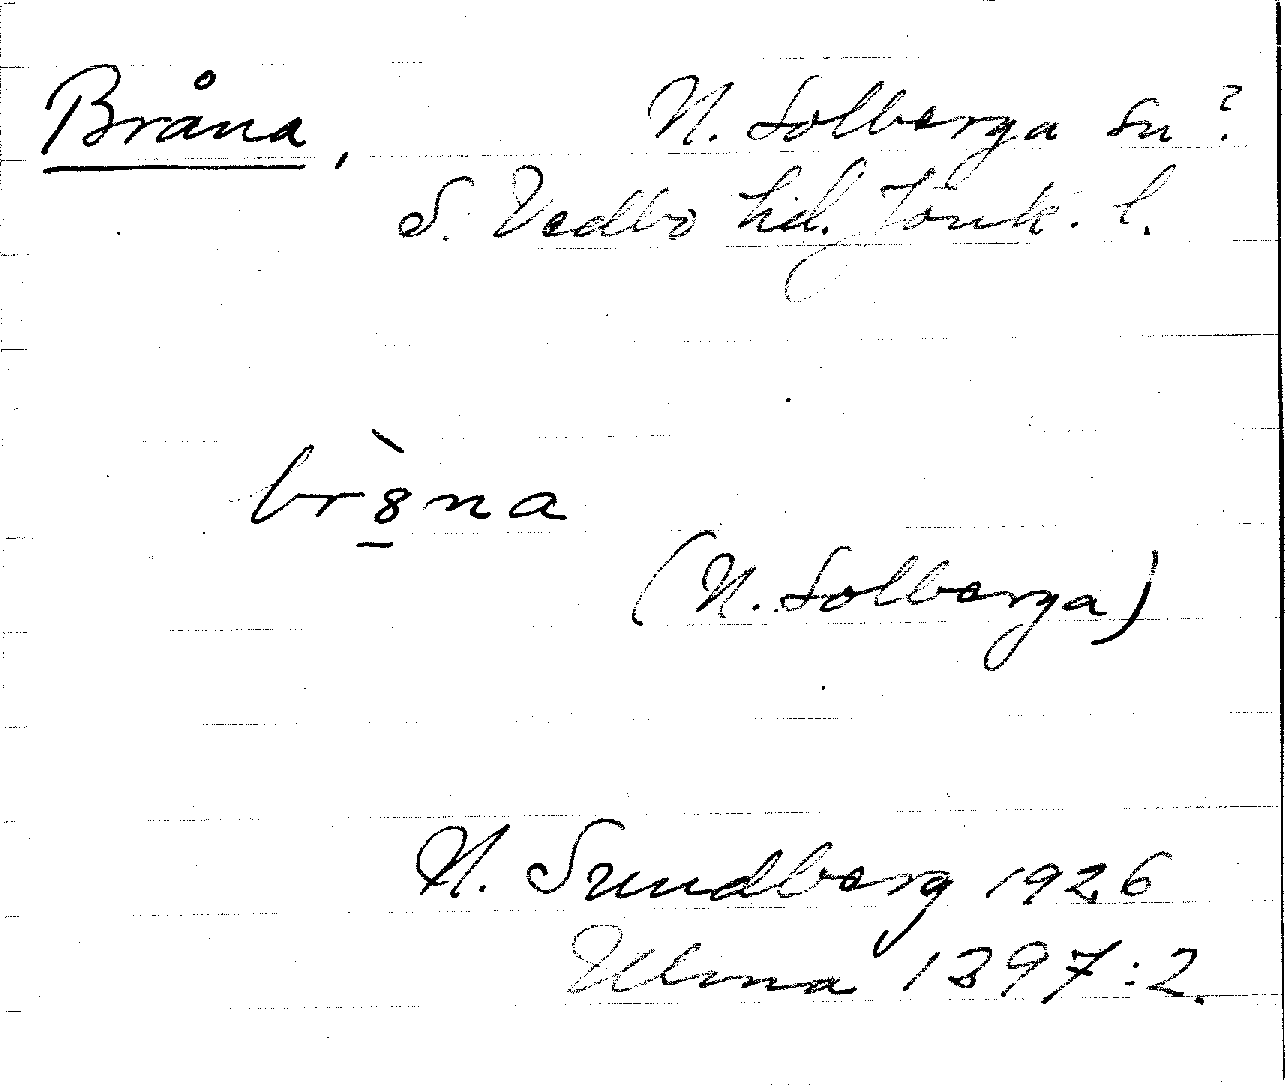 Bråna, N. Solberga sn?
S. Vedbo hd. Jönk. l.
br8̲̀na
(N. Solberga)
H. Sundberg 1926
Ulma 1397:2.